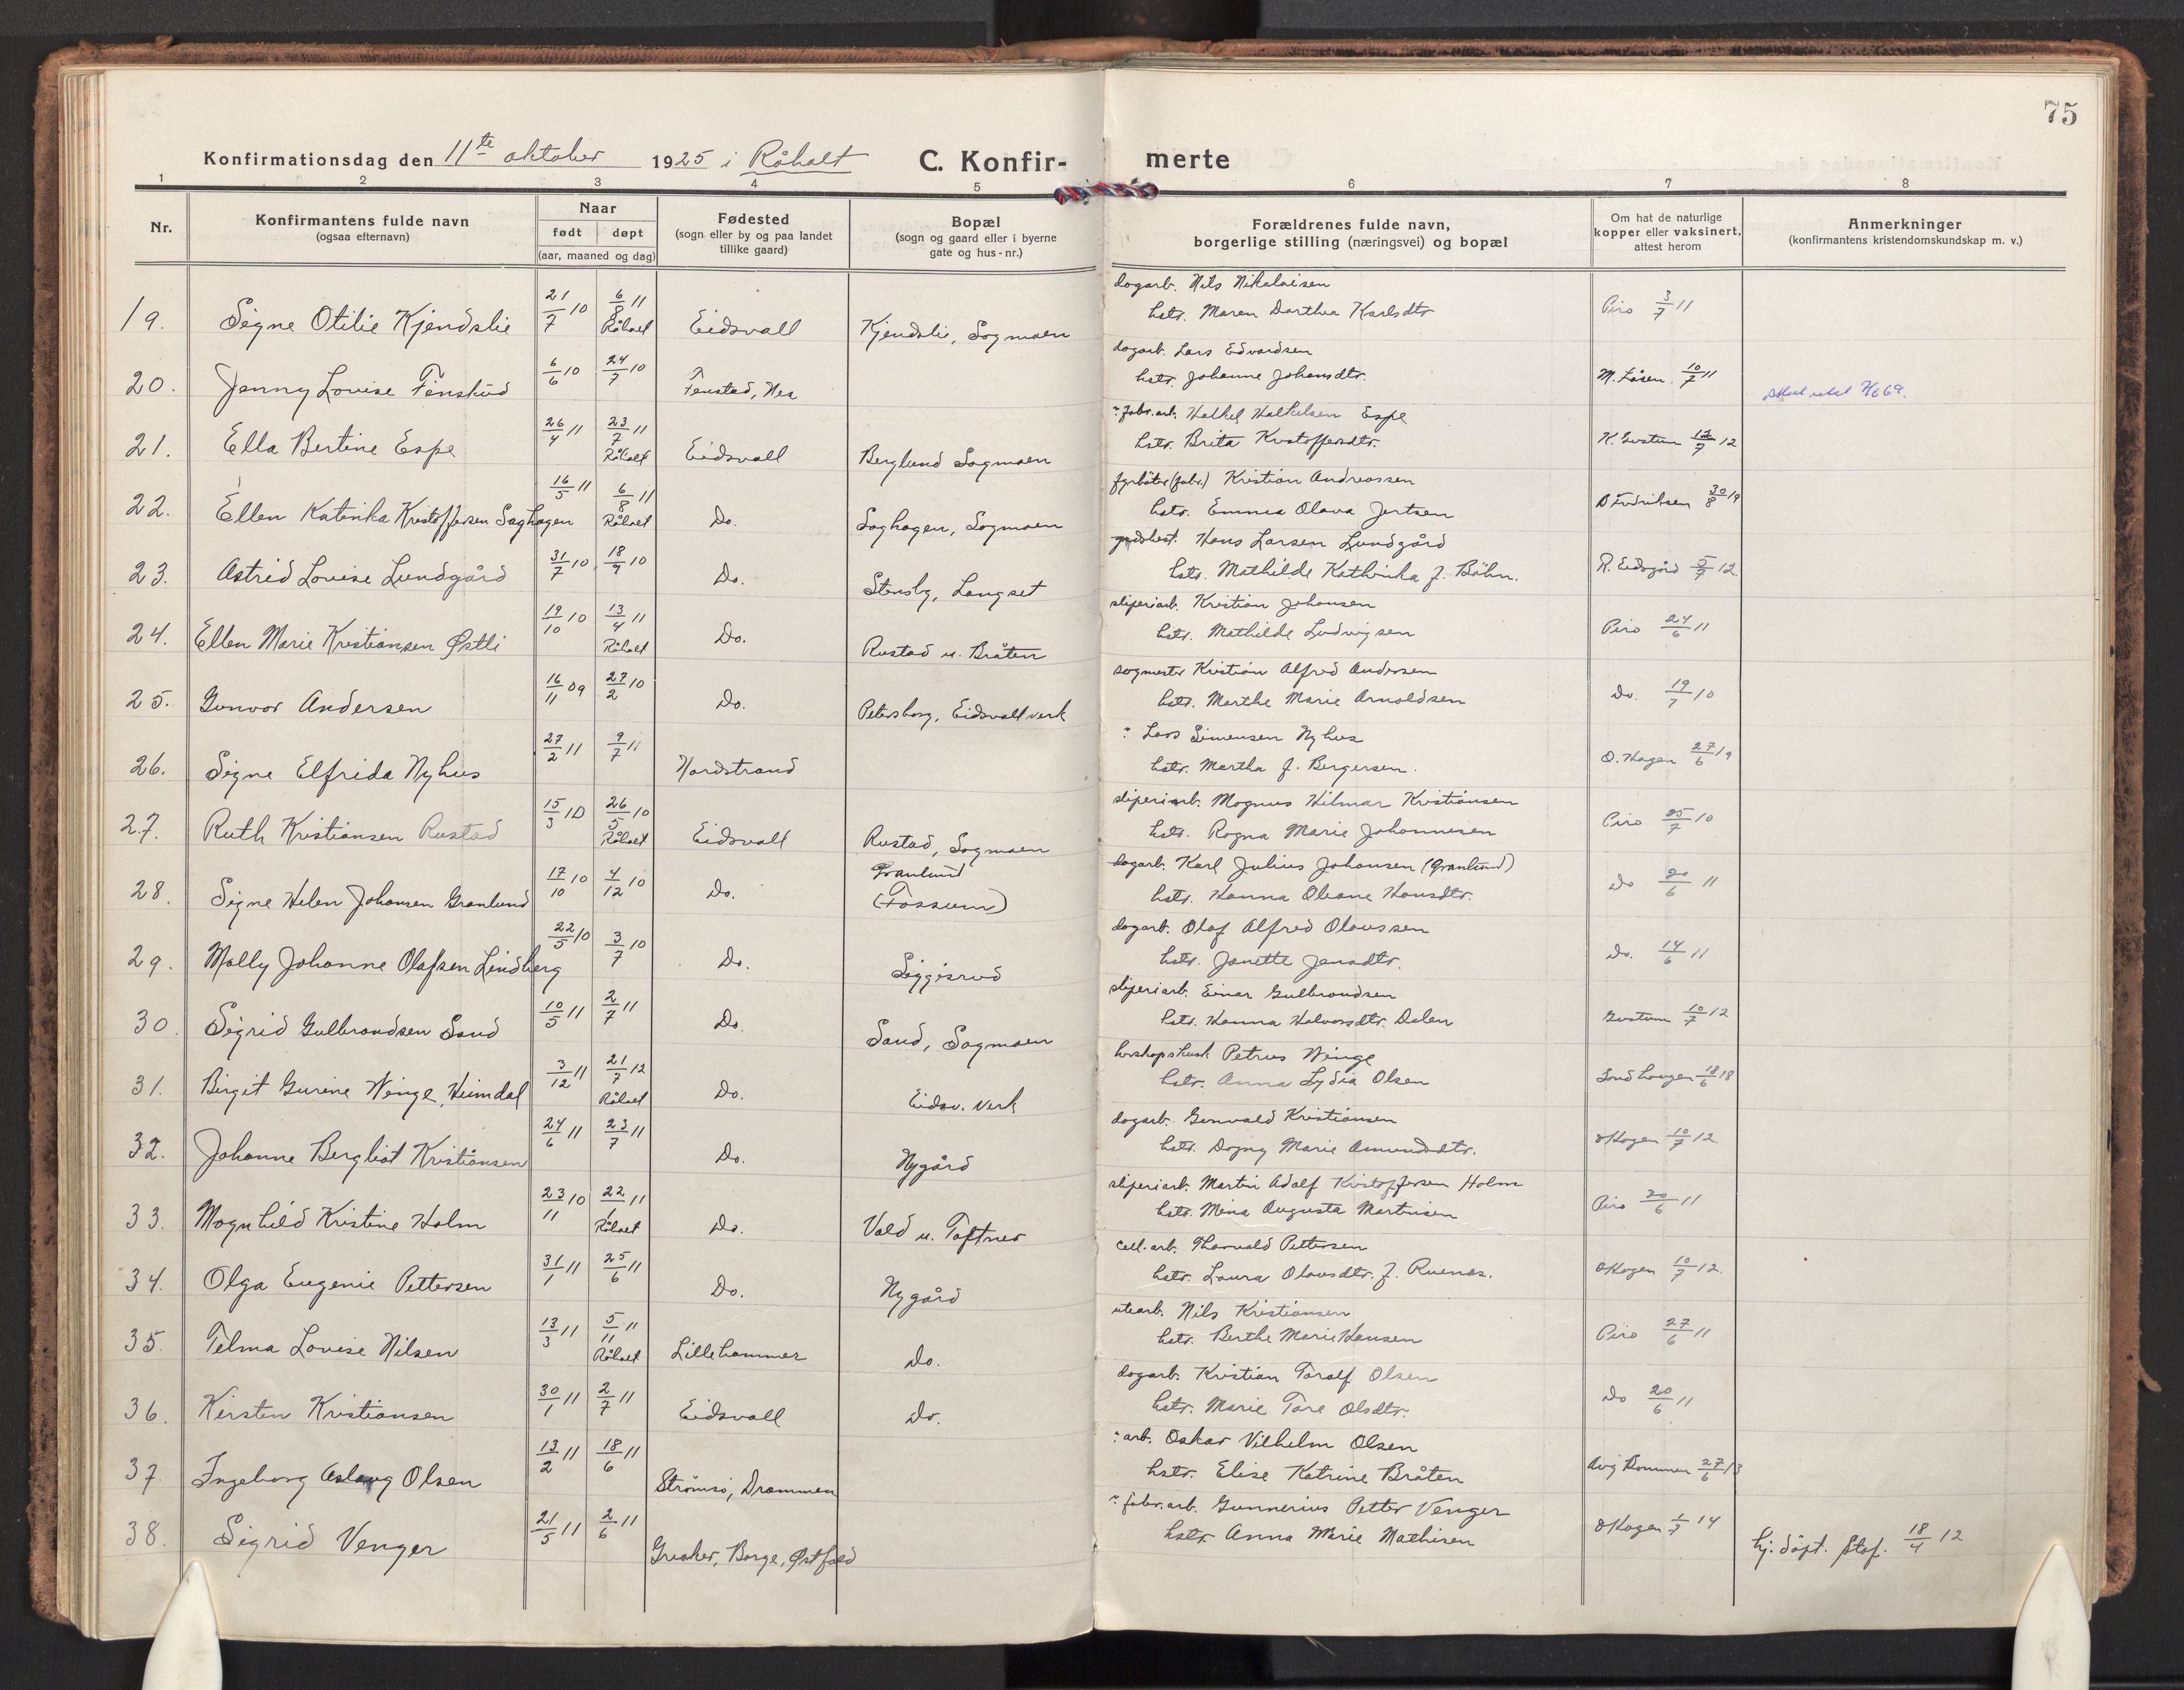 75
Konfirmationsdag den 11te oktober 1925 i Råholt C. Konfir- merte
1 2 3 4 5 6 7 8
Nr. Konfirmantens fulde navn (ogsaa efternavn) Naar født døpt (aar, maaned og dag) Fødested (sogn eller by og paa landet tillike gaard) Bopæl (sogn og gaard eller i byerne gate og hus-nr.) Forældrenes fulde navn, borgerlige stilling (næringsvei) og bopæl Om hat de naturlige kopper eller vaksinert, attest herom Anmerkninger (konfirmantens kristendomskundskap m. v.)
dagarb. Nils Nikolaisen
19. Signe Otilie Kjendslie 21/7 10 6/8 11 Råholt Eidsvoll Kjendslie, Sagmoen hstr. Maren Dorthea Karlsdtr Piro 3/7 11
dagarb. Lars Edvardsen
20. Jenny Lovise Finstad 6/6 10 24/7 10 Fenstad, Nes hstr. Johanne Johansdtr. M. Låsen 10/7 11
fabr.arb. Halkel Halkelsen Espe
21. Ella Bertine Espe 26/4 11 23/7 11 Råholt Eidsvoll Berglund Sagmoen hstr. Brita Kristoffersdtr. K. Gustum 12/7 12
fyrbøter (fabr.) Kristian Andreassen
22. Ellen Katinka Kristoffersen Saghagen 16/5 11 6/8 11 Råholt Do. Saghagen, Sagmoen hstr. Emma Olava Jertsen D Fredriksen 30/8 19
gårdbest. Hans Larsen Lundgård
23. Astrid Lovise Lundgård 31/7 10 18/9 10 Do. Stensby, Langset hstr. Mathilde Kathinka f. Bøhn. R. Eidsgård 5/7 12.
sliperiarb. Kristian Johansen
24. Ellen Marie Kristiansen Østli 19/10 10 13/4 11 Råholt Do. Rustad u. Bråten hstr. Mathilde Ludvigsen Piro 24/6 11
sagmester Kristian Alfred Andersen
25. Gunvor Andersen 16/11 09 27/2 10 Do. Petersborg, Eidsvollverk hstr. Marthe Marie Arnoldsen Do. 19/7 10
Lars Simensen Nyhus
26. Signe Elfrida Nyhus 27/2 11 9/7 11 Nordstrand hstr. Martha f. Bergersen. O. Hagen 27/6 19
sliperiarb. Magnus Hilmar Kristiansen
27. Ruth Kristiansen Rustad 15/3 10 26/5 10 Råholt Eidsvoll Rustad, Sagmoen hstr. Ragna Marie Johannesen Piro 25/7 10
dagarb. Karl Julius Johansen (Granlund)
28. Signe Helen Johansen Granlund 17/10 10 4/12 10 Do. Granlund (Fossum) hstr. Hanna Oleane Hansdtr. Do 20/6 11
dagarb. Olaf Alfred Olaussen
29. Molly Johanne Olafsen Lindberg 22/5 10 3/7 10 Do. Siggisrud hstr. Janette Jensdtr. Do. 14/6 11
sliperiarb. Einar Gulbrandsen
30. Sigrid Gulbrandsen Sand 10/5 11 2/7 11 Do. Sand, Sagmoen hstr. Hanna Halvorsdtr. Dalen Gustum 10/7 12
herskapskusk Petrus Winge
31. Birgit Gurine Winge, Heimdal 3/12 11 21/7 12 Råholt Do. Eidsv. verk hstr. Anna Lydia Olsen 18/6 18
dagarb. Gunvald Kristiansen
32. Johanne Bergliot Kristiansen 24/6 11 23/7 11 Do. Nygård hstr. Dagny Marie Amundsdtr. O Hagen 10/7 12.
sliperiarb. Martin Adolf Kristoffersen Holm
33. Magnhild Kristine Holm 23/11 10 22/1 11 Råholt Do. Vold u. Toftner hstr. Mina Augusta Martinsen Piro 20/6 11
cell.arb. Thorvald Pettersen
34. Olga Eugenie Pettersen 31/1 11 25/6 11 Do. Nygård hstr. Laura Olausdtr. f. Ruenes. O Hagen 10/7 12.
utearb. Nils Kristiansen
35. Telma Lovise Nilsen 13/3 11 5/11 11 Råholt Lillehammer Do. hstr. Berthe Marie Hansen Piro 27/6 11
dagarb. Kristian Toralf Olsen
36. Kirsten Kristiansen 30/1 11 2/7 11 Eidsvoll Do. hstr. Marie Tore Olsdtr. Do 20/6 11
arb. Oskar Vilhelm Olsen
37. Ingeborg Aslaug Olsen 13/2 11 18/6 11 Strømsø, Drammen hstr. Elise Katrine Bråten 27/6 13
fabr.arb. Gunnerius Petter Venger
38. Sigrid Venger 21/5 11 2/6 11 Greaker, Borge, Østfold hstr. Anna Marie Mathisen O Hagen 1/7 14 hj. døpt. Staf. 18/4 12